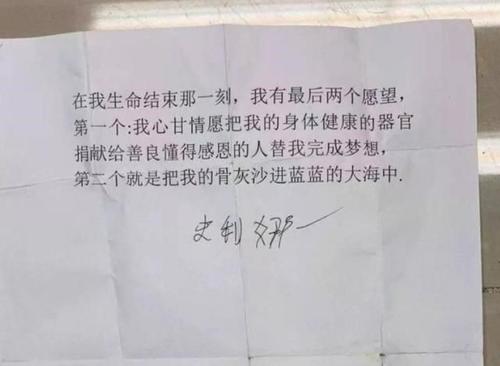 在我生命结束那一刻，我有最后两个愿望，
第一个:我心甘情愿把我的身体健康的器官
捐献给善良懂得感恩的人替我完成梦想，
第二个就是把我的骨灰沙进蓝蓝的大海中.
史利娜